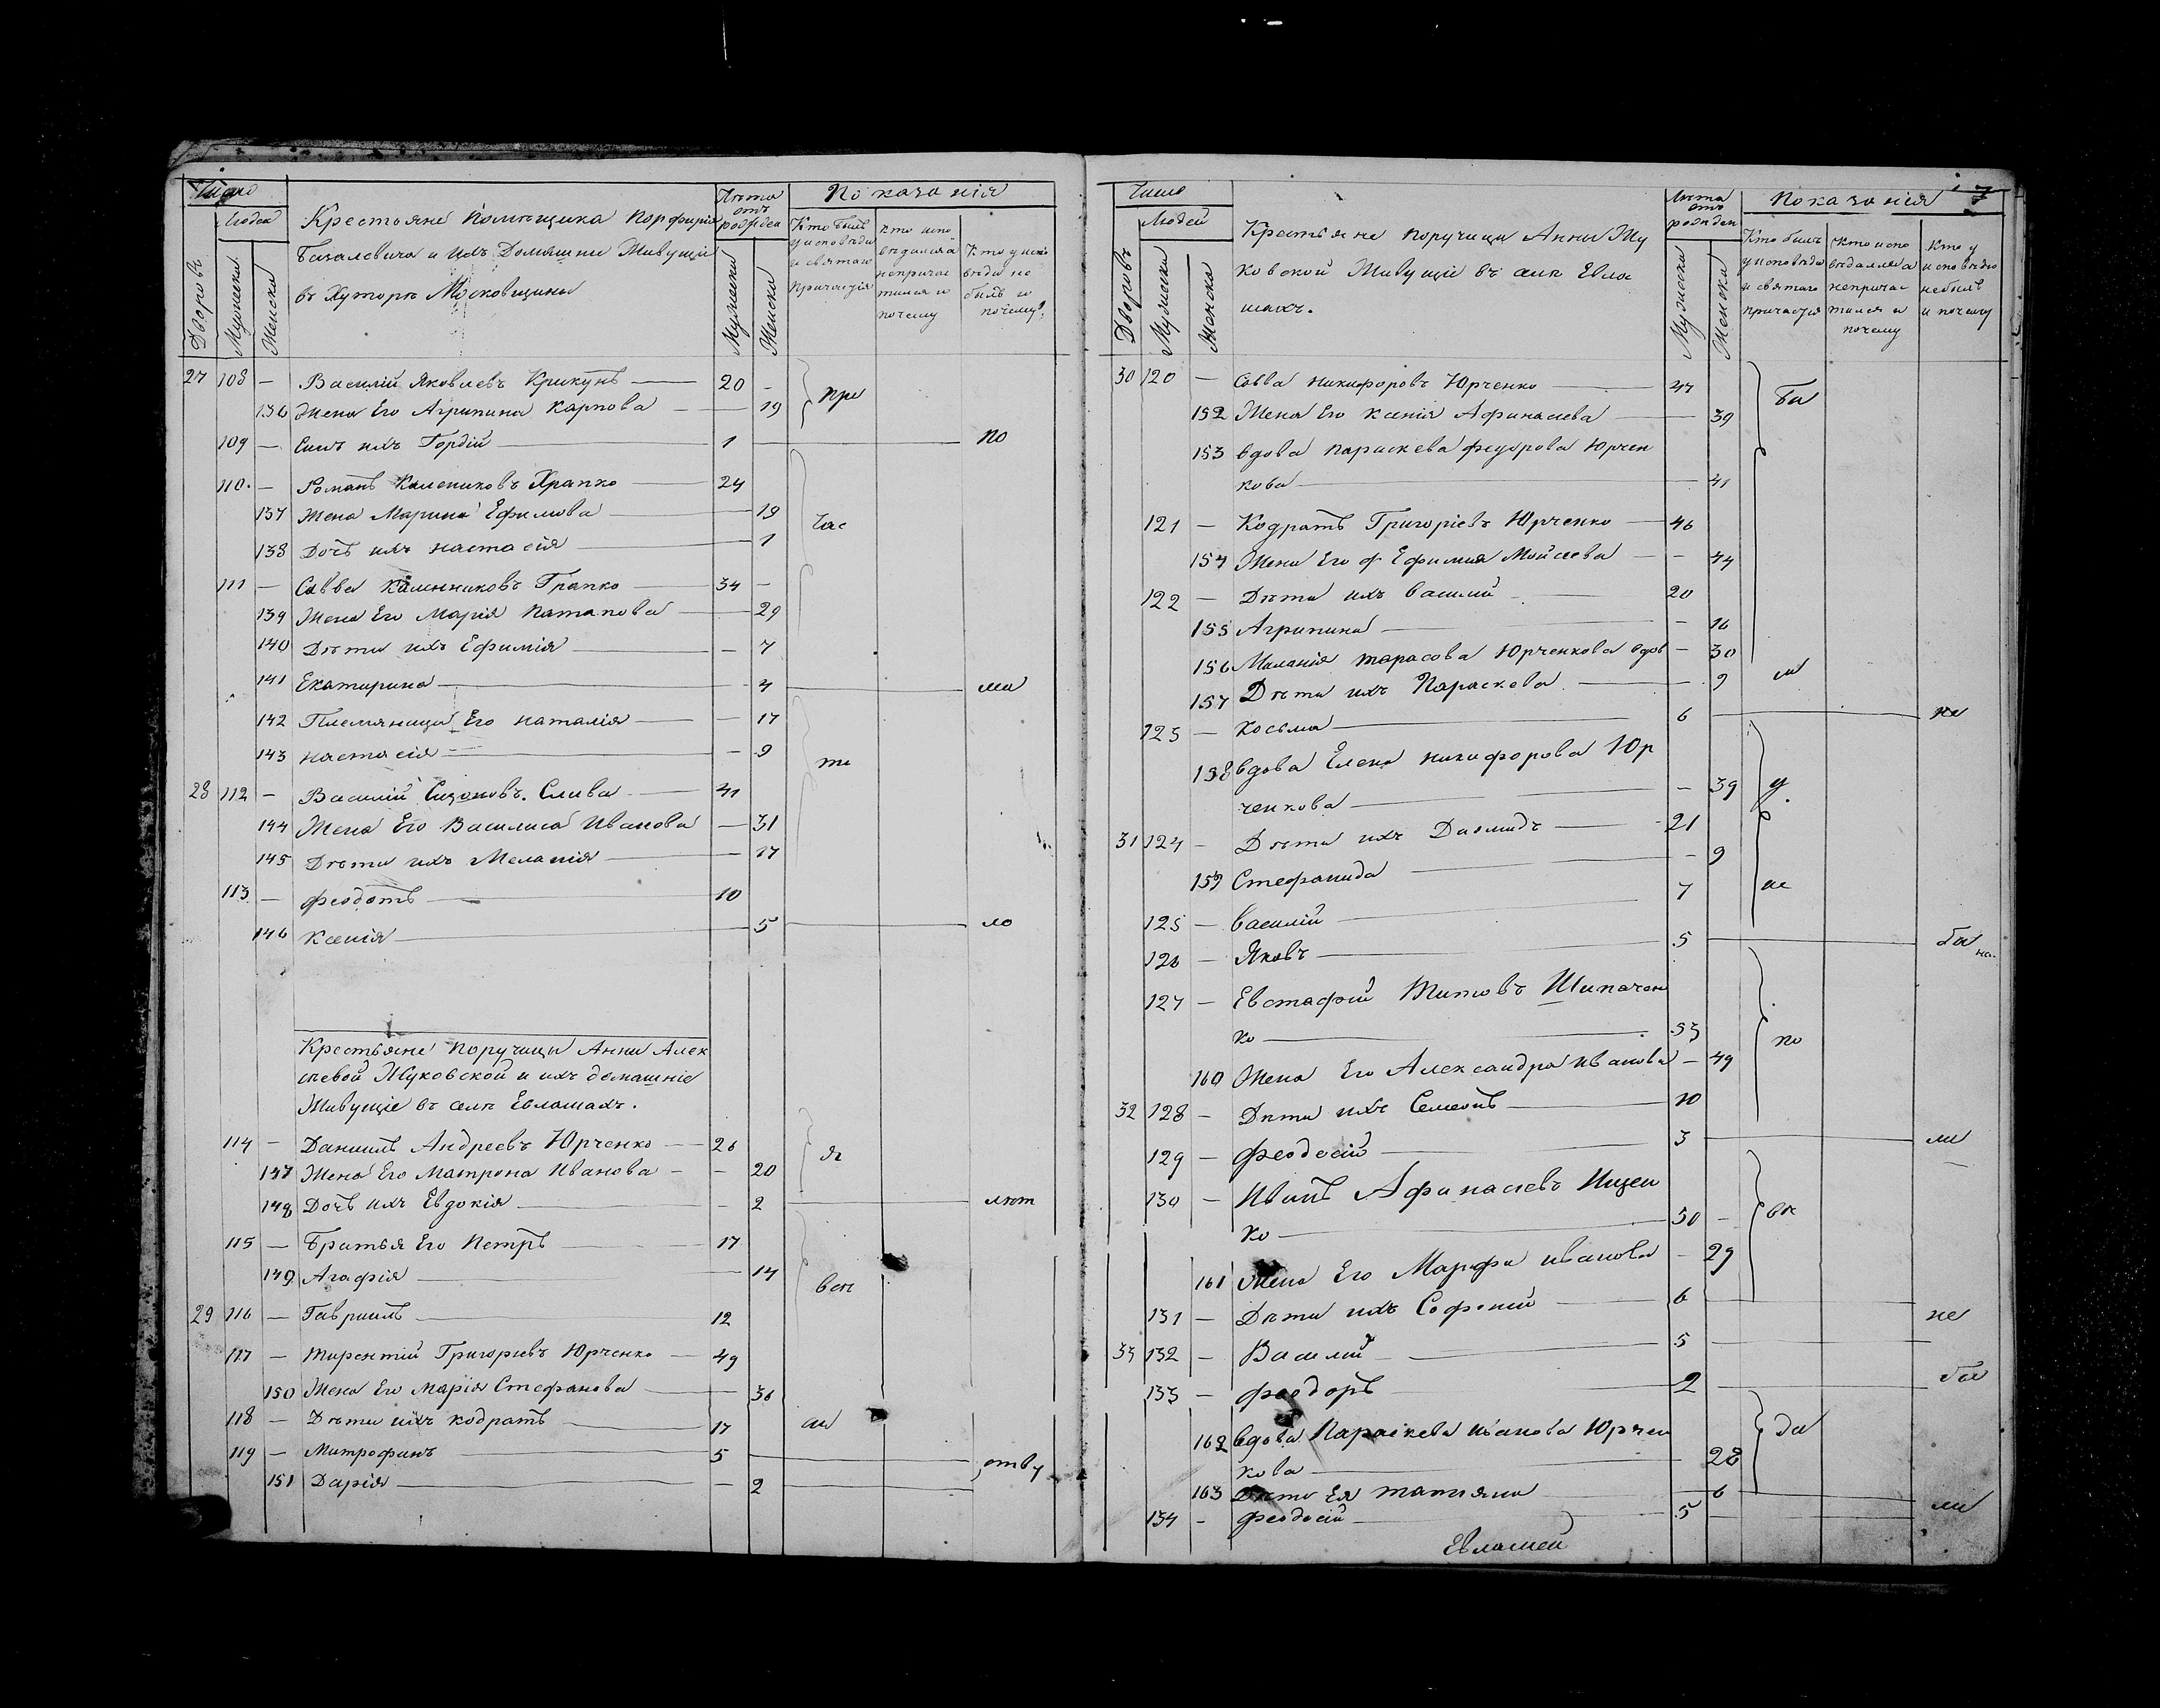 Число
Людей
Дворовъ
Мужеска
Женска
Крестьяне Помѣщика Порфирія
Базалевича и ихъ Домашни Живущіе
въ Хуторѣ Московщины
Лѣта
отъ
рожден
Мужеска
Женска
Показанія
Кто былъ
у исповѣди
и святаго
причастія
Кто испо
вѣдался а
непричас
тился и
почему
Кто у испо
вѣди не
былъ и
почему?
27 108 — Василій Яковлевъ Крикунъ — 20 - при
136 Жена Его Агрипина Карпова — 19
109 — Сынъ ихъ Гордій — 1 — по
110. — Романъ Калениковъ Храпко — 24
137 Жена Марина Ефимова — 19 час
138 Дочъ ихъ Настасія — 1
111 — Савва Калинниковъ Грапко — 34 -
139 Жена Его Марія Патапова — 29
140 Дѣти ихъ Ефимія — 7
141 Екатирина — 4 — ма
142 Племяница Его Наталія — 17
143 Настасія — 9 ти
28 112 — Василій Сизоновъ. Слива — 41
144 Жена Его Василиса Иванова — 31
145 Дѣти ихъ Меланія — 17
113 — Феодотъ — 10
146 Ксенія — 5 — ло
Крестьяне Поручици Анни Алек
сѣевой Жуковской и ихъ домашніе
Живущіе въ селѣ Евлашахъ.
114 — Даниилъ Андреевъ Юрченко — 26 я
147 Жена Его Матрона Иванова — 20
148 Дочъ ихъ Евдокія — 2 — лѣт
115 — Братья Его Петръ — 17
149 Агафія — 14 всѣ
29 116 — Гавриилъ — 12
117 — Тирентій Григорьевъ Юрченко — 49
150 Жена Его Марія Стефанова — 36
118 — Дѣти ихъ Кодратъ — 17
119 — Митрофанъ — 5 — отву
151 Дарія — 2
7
Число
Людей
Дворовъ
Мужеска
Женска
Крестьяне Поручици Анни Жу
ковской Живущіе въ селѣ Евла
шахъ.
Лѣта
отъ
рожден
Мужеска
Женска
Показанія
Кто былъ
у исповѣди
и святаго
причастія
Кто испо
вѣдался а
непричас
тился и
почему
Кто у
исповѣди
небылъ
и почему
30 120 — Савва Никифоровъ Юрченко — 47 бы
152 Жена Его Ксенія Афанасиева — 39
153 вдова Параскева Федорова Юрчен
кова — 41
121 — Кодратъ Григоріевъ Юрченко — 46
154 Жена Его Ефимия Мойсеева — 44
122 — Дѣти ихъ Василий — 20
155 Агрипина — 16
156 Миланія Тарасова Юрченкова вдов — 30
157 Дѣти ихъ Параскева — 9 ли
123 — Косьма — 6 — не
158 вдова Елена Никифорова Юр
ченкова — 39 у
31 124 — Дѣти ихъ Диомидъ — 21
159 Стефанида — 9
125 — Василій — 7
126 — Яковъ — 5 — бы
127 — Евстафій Титовъ Шипачен
ко — 53 по
160 Жена Его Александра Иванова — 49
32 128 — Дѣти ихъ Семенъ — 10
129 — Феодосій — 3 — ли
130 — Иванъ Афанасиевъ Ищен
ко — 30 -
161 Жена Его Марфа Иванова — 29
131 — Дѣти ихъ Софоній — 6 — не
33 132 — Василій — 5
133 — Феодоръ — 2 — бы
162 вдова Параскева Иванова Юрчен
кова — 28 ди
163 Дѣти Ея Татияна — 6
134 - Феодосій — 5 — ли
Евлашей